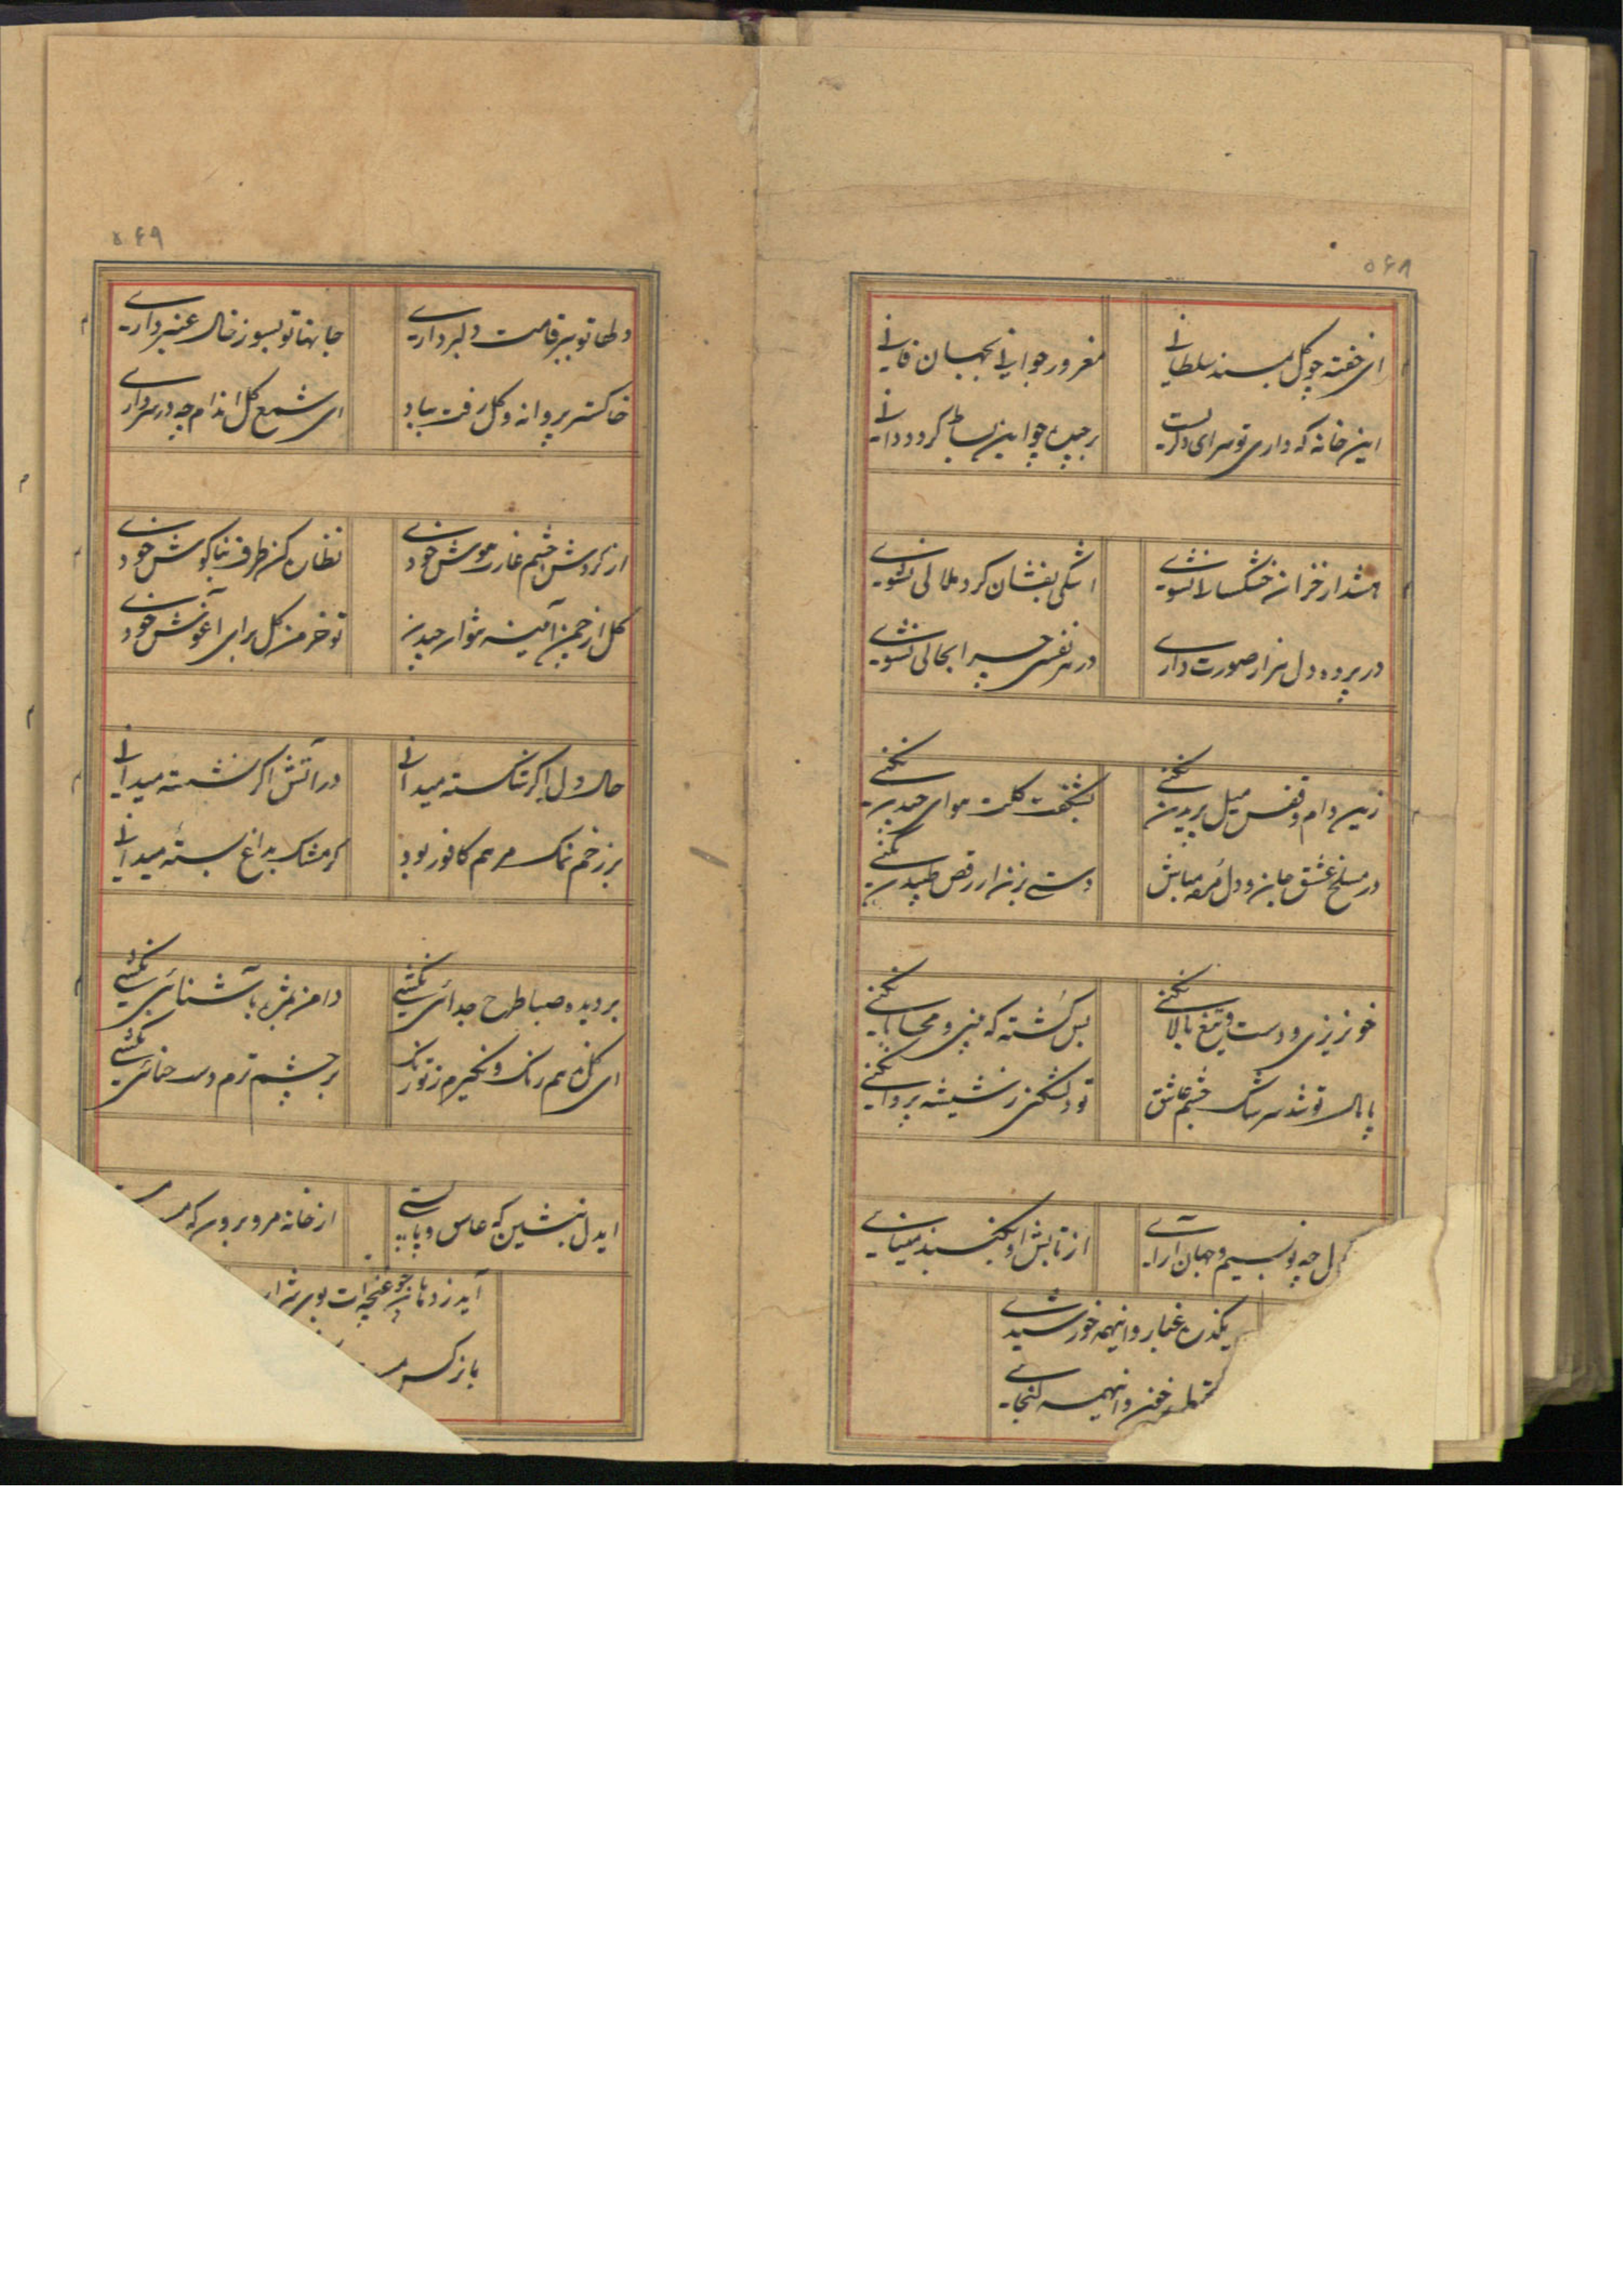 ۵۶۸
ای خفته چو گل بمسند سلطانی
مغرور جوانی بجهان فانی
این خانه که داری تو سرای دگریست
برچیده چو این بساط گردد دانی
هشدار خزان خشکسالی نشوی
اشکی بفشان گرد ملالی نشوی
در پرده دل هزار صورت داری
در هر نفسی چرا بحالی نشوی
زین دام و قفس میل پریدن نکنی
بشکفت گلت هوای چیدن نکنی
در مسلخ عشق جان و دل مباش
دستی بزن ار رقص طپیدن نکنی
خونریزی و دست و تیغ بالا نکنی
بس کشته که بینی و محابا نکنی
پامال تو شد سرشک چشم عاشق
تو دلشکنی ز شیشه پروا نکنی
دل چه نسیم و جهان آرای
از تابش او بگنبد مینای
یکذره غبار و اینهمه خورشیدی
خون و اینهمه گنجای
۵۶۹
دلها تو ببر قامت دلبر داری
جانها تو بسوز خال عنبر داری
خاکستر پروانه و گل رفت بباد
ای شمع گل اندام چه در سر داری
از گردش چشم غارت هوش خودی
نظاره کن طرف بناگوش خودی
گل از چمن آینه دشوار چیدن
تو خرمن گل برای آغوش خودی
حال دل اگر شکسته میدانی
در آتش اگر نشسته میدانی
بر زخم نمک مرهم کافور بود
گر مشک بداغ بسته میدانی
بر دیده صبا طرح جدائی نکشی
دامن مژه با آشنائی نکشی
ای گل همه رنگ و نگیرم ز تو رنگ
بر چشم ترم دست حنائی نکشی
ایدل بنشین که عاس و پابستی
از خانه مرو برون که
آید ز دهان چو غنچه ات بوی شراب
با نرگس